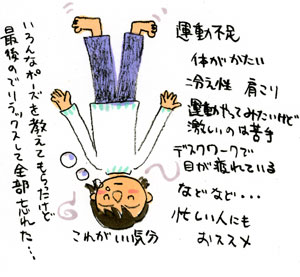 運動不足
体がかたい
冷え性 肩こり
運動やってみたいけど
激しいのは苦手
デスクワークで
目が疲れている
などなど・・・
忙しい人にも
おススメ
これがいい気分
いろんなポーズを教えてもらったけど
最後のでリラックスして全部忘れた…